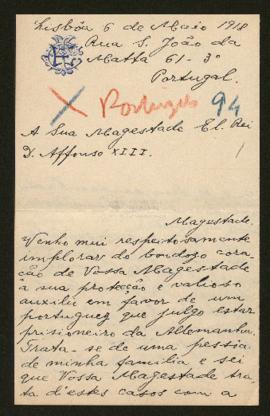 Lisbôa 6 de Maio 1918
Rua S. João da
Matta 61-3º
Portugal.
Portugués 94
A Sua Magestade El-Rei
D. Affonso XIII.
Magestade
Venho mui respeitosamente
implorar do bondozo cora-
ção de Vossa Magestade
a sua proteção e valioso
auxilio em favor de um
portuguez que julgo estar
prisioneiro da Allemanha.
Trata-se de uma pessôa
de minha familia e sei
que Vossa Magestade tra-
ta d'estes casos com a